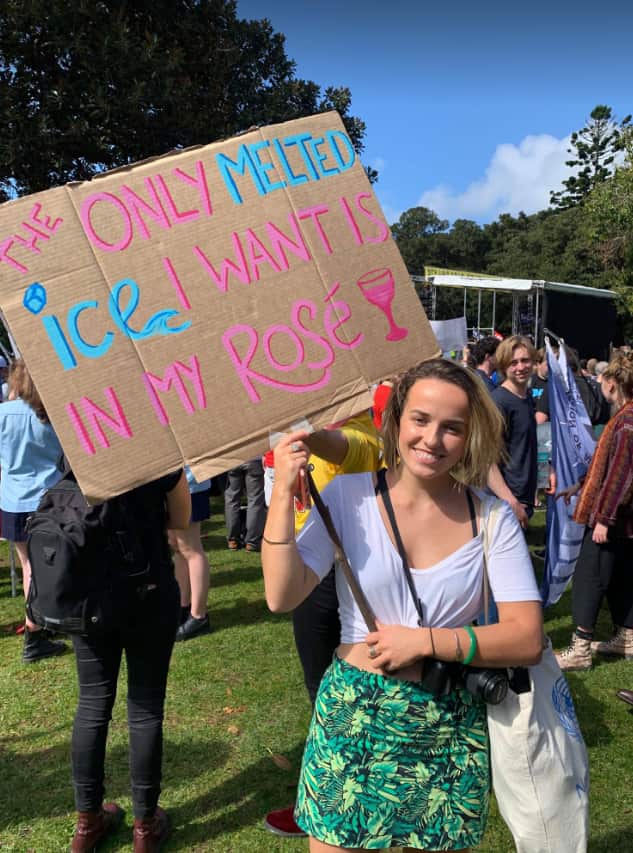 THE ONLY MELTED
ice I WANT IS
IN MY Rosé